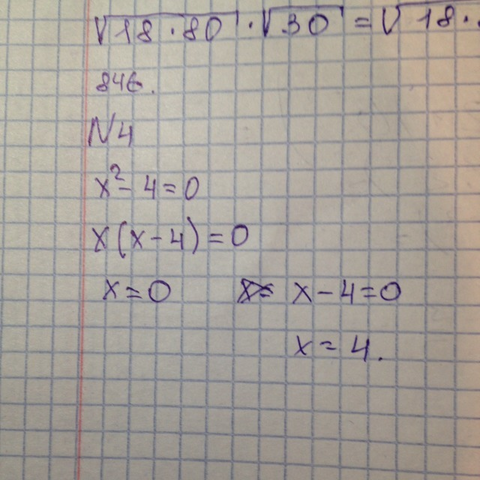 √18·80 · √30 = √18·
846.
N4
x² - 4 = 0
x(x-4) = 0
x = 0 x - 4 = 0
x = 4.